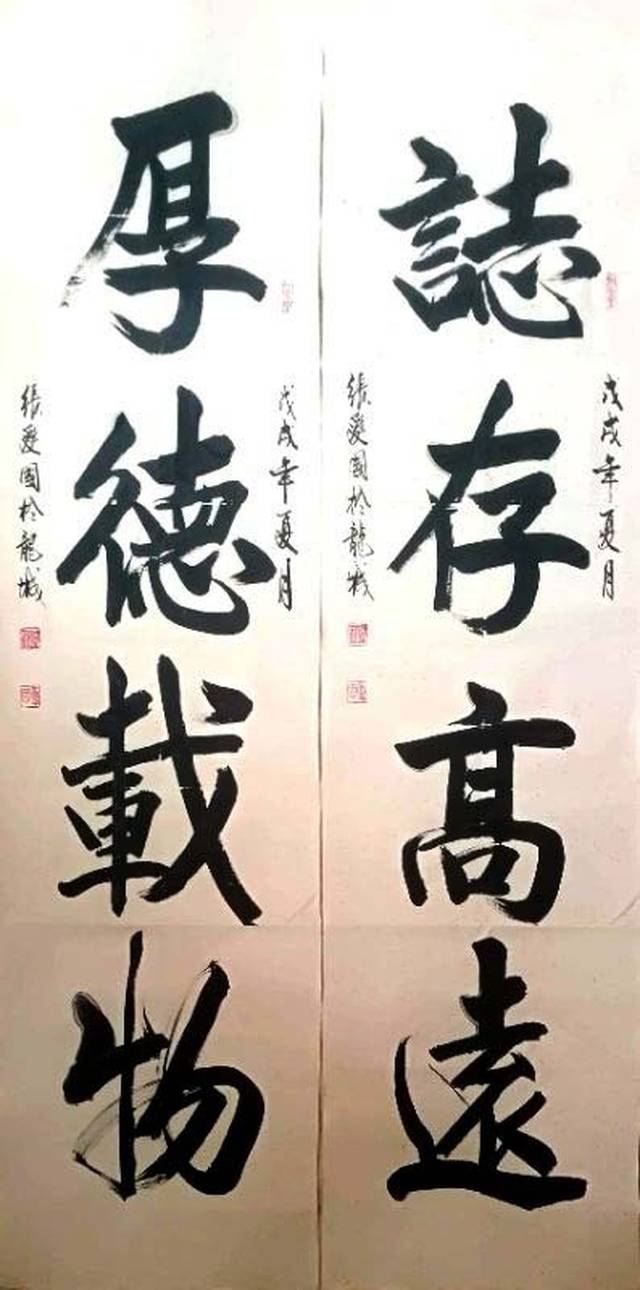 誌存高遠
戊戌年夏月
張愛國於龍城
厚德載物
戊戌年夏月
張愛國於龍城